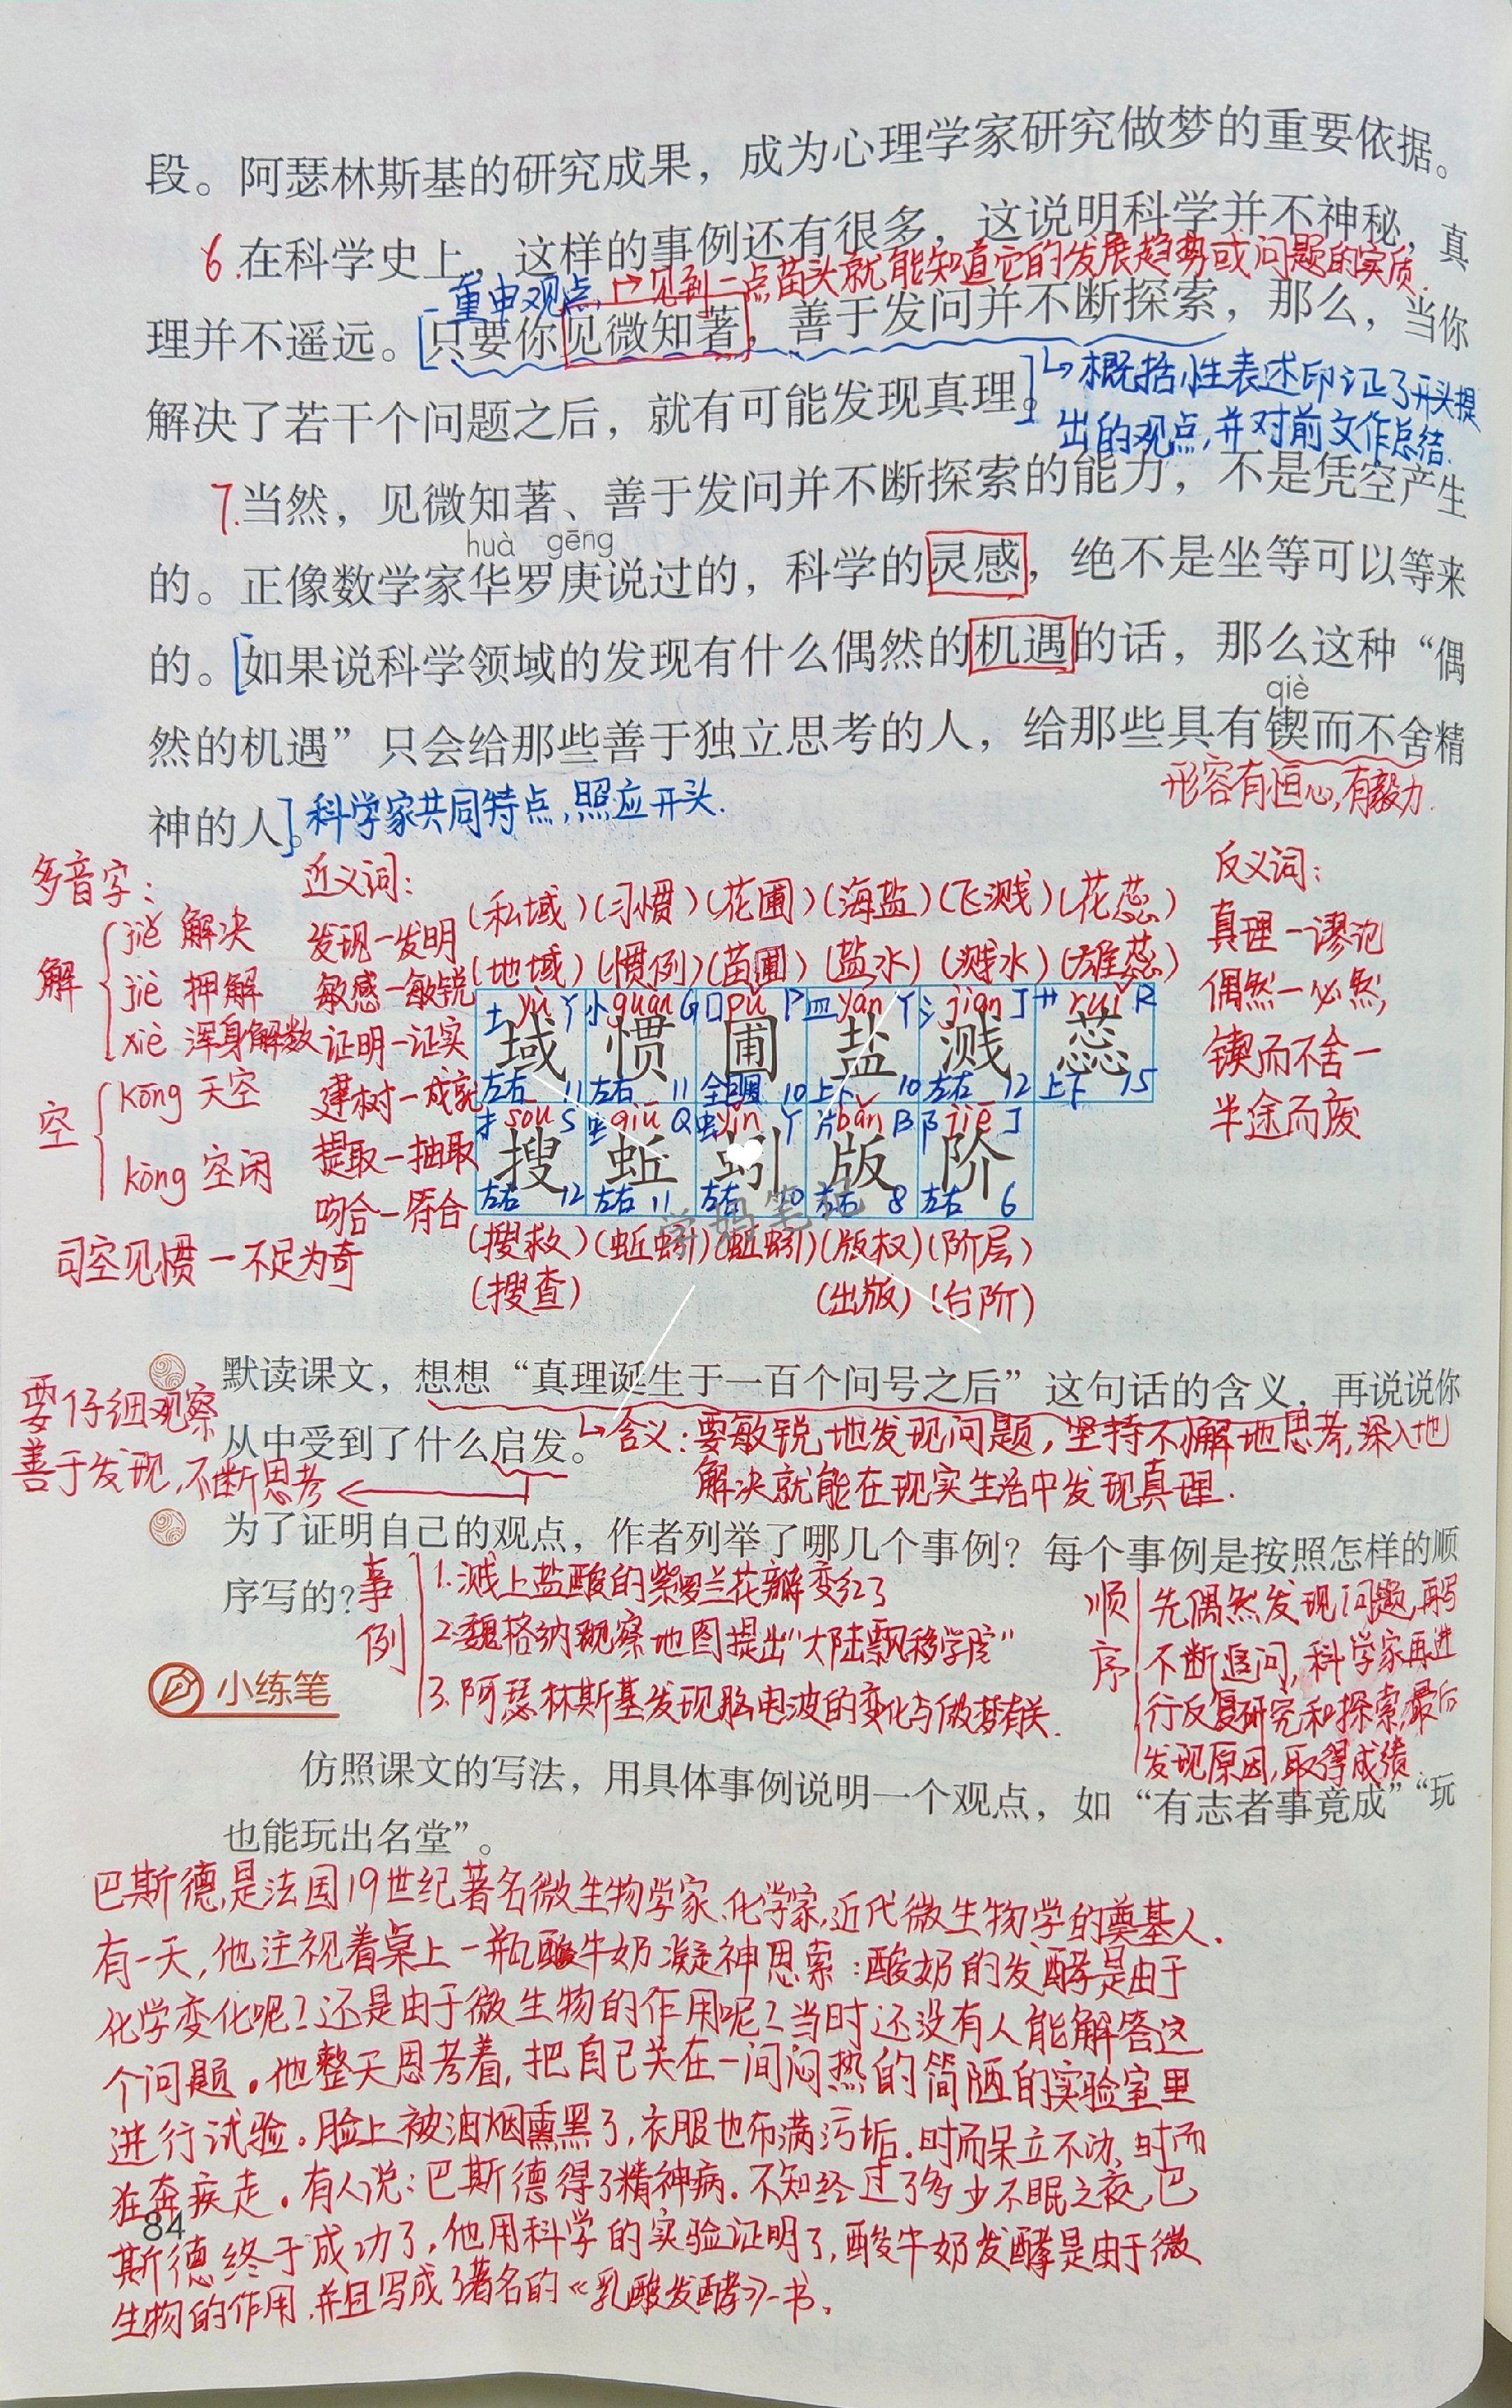 段。阿瑟林斯基的研究成果，成为心理学家研究做梦的重要依据。
6.在科学史上，这样的事例还有很多，这说明科学并不神秘，真
重申观点,
见到一点苗头就能知道它的发展趋势或问题的实质.
理并不遥远。[只要你见微知著，善于发问并不断探索，那么，当你
解决了若干个问题之后，就有可能发现真理。]
概括性表述印证了开头提
出的观点,并对前文作总结.
7.当然，见微知著、善于发问并不断探索的能力，不是凭空产生
huà gēng
的。正像数学家华罗庚说过的，科学的灵感，绝不是坐等可以等来
的。[如果说科学领域的发现有什么偶然的机遇的话，那么这种“偶
qiè
然的机遇”只会给那些善于独立思考的人，给那些具有锲而不舍精
形容有恒心,有毅力.
神的人。]科学家共同特点,照应开头.
多音字:
解
jiě 解决
jiè 押解
xiè 浑身解数
空
kōng 天空
kòng 空闲
近义词:
发现—发明
敏感—敏锐
证明—证实
建树—成就
提取—抽取
吻合—符合
司空见惯—不足为奇
(私域)(习惯)(花圃)(海盐)(飞溅)(花蕊)
(地域)(惯例)(苗圃)(盐水)(溅水)(雄蕊)
土 yù Y 忄 guàn G 囗 pǔ P 皿 yán Y 氵 jiàn J 艹 ruǐ R
域 惯 圃 盐 溅 蕊
左右 11 左右 11 全包围 10 上下 10 左右 12 上下 15
扌 sōu S 虫 qiū Q 虫 yǐn Y 片 bǎn B 阝 jiē J
搜 蚯 蚓 版 阶
左右 12 左右 11 左右 10 左右 8 左右 6
学妈笔记
(搜救)(蚯蚓)(蚯蚓)(版权)(阶层)
(搜查) (出版)(台阶)
反义词:
真理—谬论
偶然—必然
锲而不舍—
半途而废
默读课文，想想“真理诞生于一百个问号之后”这句话的含义，再说说你
从中受到了什么启发。
含义:要敏锐地发现问题,坚持不懈地思考,深入地
解决就能在现实生活中发现真理.
要仔细观察
善于发现,不断思考
为了证明自己的观点，作者列举了哪几个事例？每个事例是按照怎样的顺
序写的？
事例
1.溅上盐酸的紫罗兰花瓣变红了
2.魏格纳观察地图提出“大陆飘移学说”
3.阿瑟林斯基发现脑电波的变化与做梦有关.
顺序
先偶然发现问题,再写
不断追问,科学家再进
行反复研究和探索,最后
发现原因,取得成绩
小练笔
仿照课文的写法，用具体事例说明一个观点，如“有志者事竟成”“玩
也能玩出名堂”。
巴斯德,是法国19世纪著名微生物学家、化学家,近代微生物学的奠基人.
有一天,他注视着桌上一瓶酸牛奶凝神思索:酸奶的发酵是由于
化学变化呢?还是由于微生物的作用呢?当时还没有人能解答这
个问题。他整天思考着,把自己关在一间闷热的简陋的实验室里
进行试验。脸上被油烟熏黑了,衣服也布满污垢.时而呆立不动,时而
狂奔疾走。有人说:巴斯德得了精神病.不知经过了多少不眠之夜,巴
斯德终于成功了,他用科学的实验证明了,酸牛奶发酵是由于微
生物的作用,并且写成了著名的《乳酸发酵》一书.
84